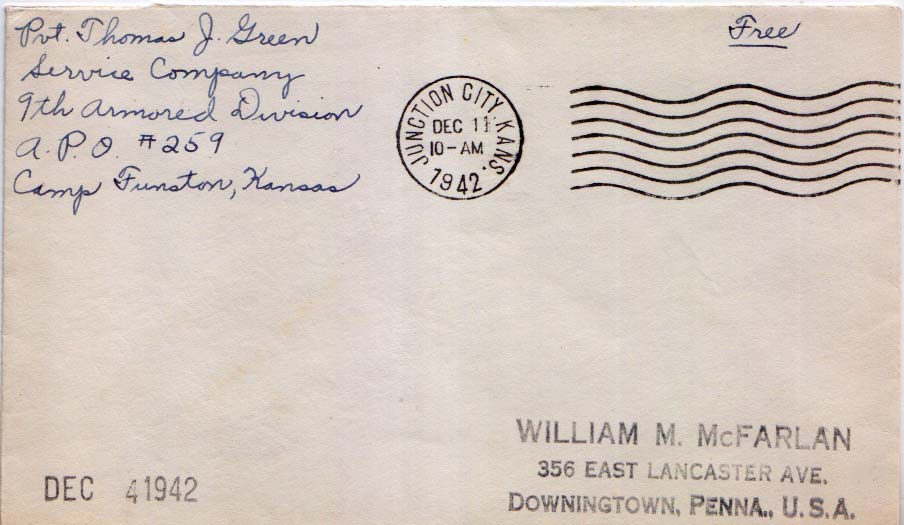 Pvt. Thomas J. Green
Service Company
9th Armored Division
A.P.O. #259
Camp Funston, Kansas
Free
JUNCTION CITY, KANS.
DEC 11
10-AM
1942
WILLIAM M. McFARLAN
356 EAST LANCASTER AVE.
DOWNINGTOWN, PENNA., U.S.A.
DEC 4 1942